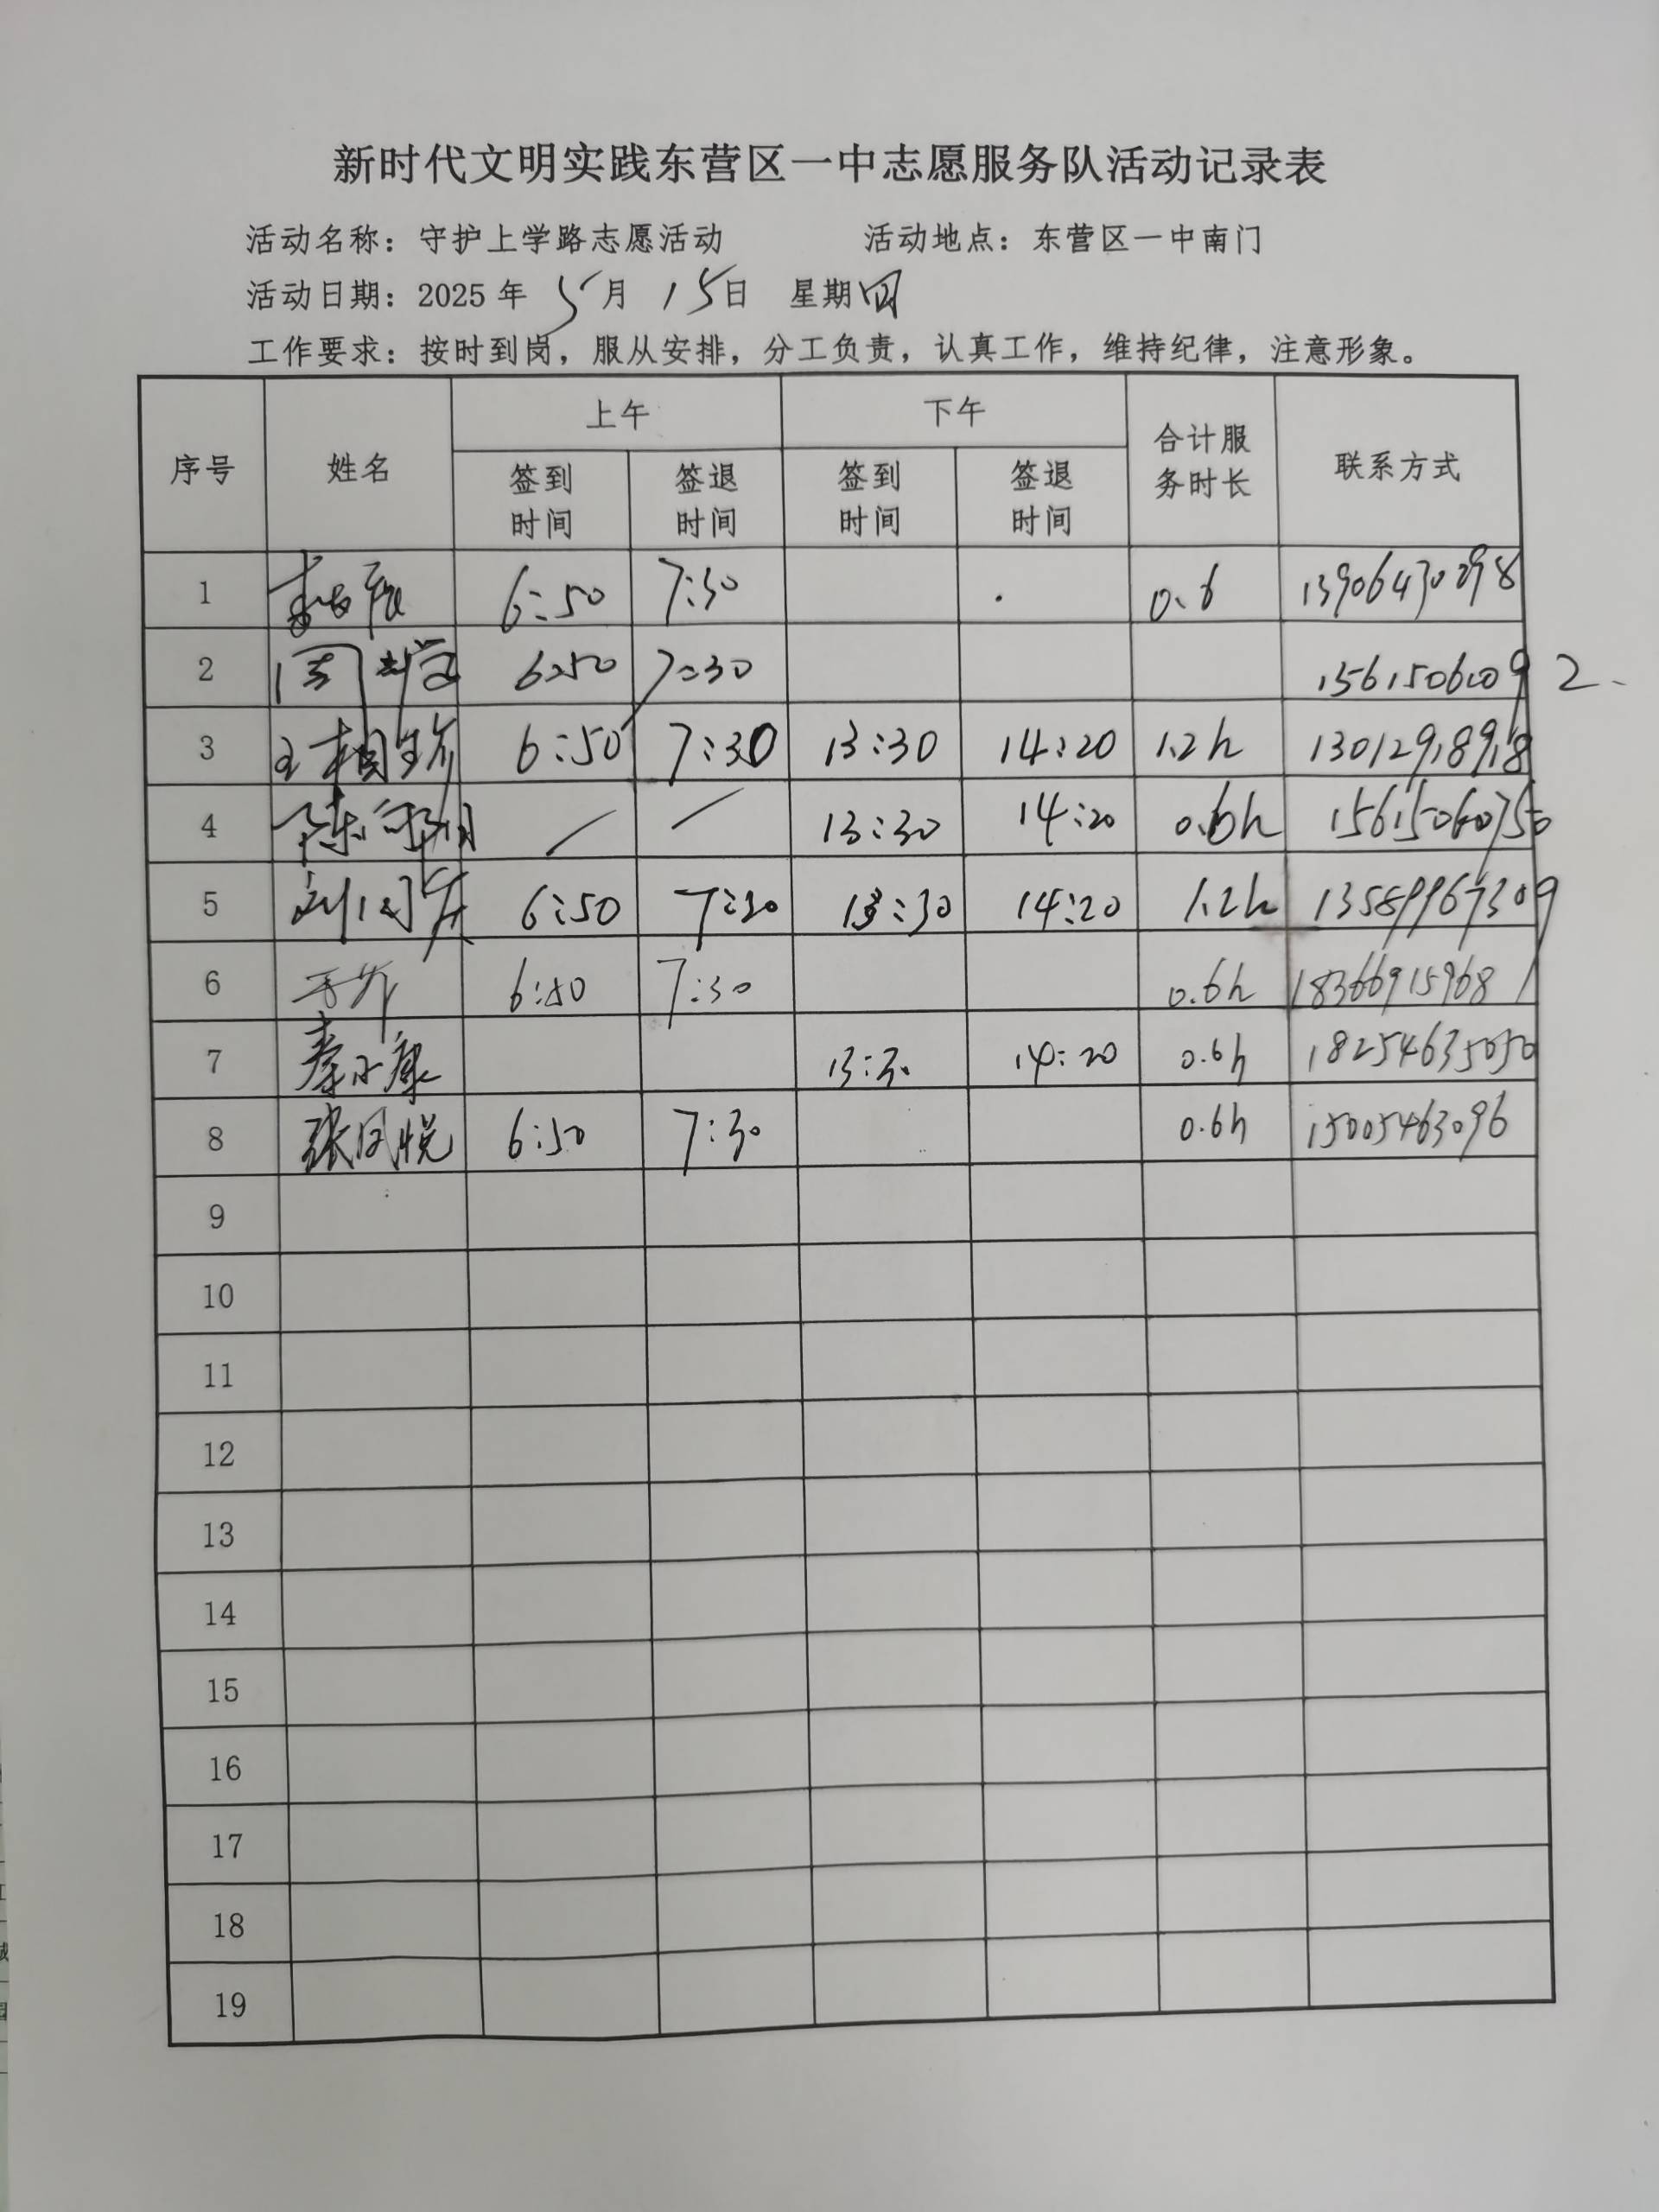 新时代文明实践东营区一中志愿服务队活动记录表
活动名称：守护上学路志愿活动 活动地点：东营区一中南门
活动日期：2025年 5月 15日 星期四
工作要求：按时到岗，服从安排，分工负责，认真工作，维持纪律，注意形象。
序号 姓名 上午 下午 合计服务时长 联系方式
签到时间 签退时间 签到时间 签退时间
1 6:50 7:30 0.6 13906430298
2 周 6:50 7:30 15615061092
3 王相 6:50 7:30 13:30 14:20 1.2h 13012918918
4 陈 / / 13:30 14:20 0.6h 15615060750
5 刘同庆 6:50 7:30 13:30 14:20 1.2h 13589967309
6 6:50 7:30 0.6h 18366915968
7 秦小康 13:30 14:20 0.6h 18254635050
8 张凤悦 6:50 7:30 0.6h 15005463096
9
10
11
12
13
14
15
16
17
18
19